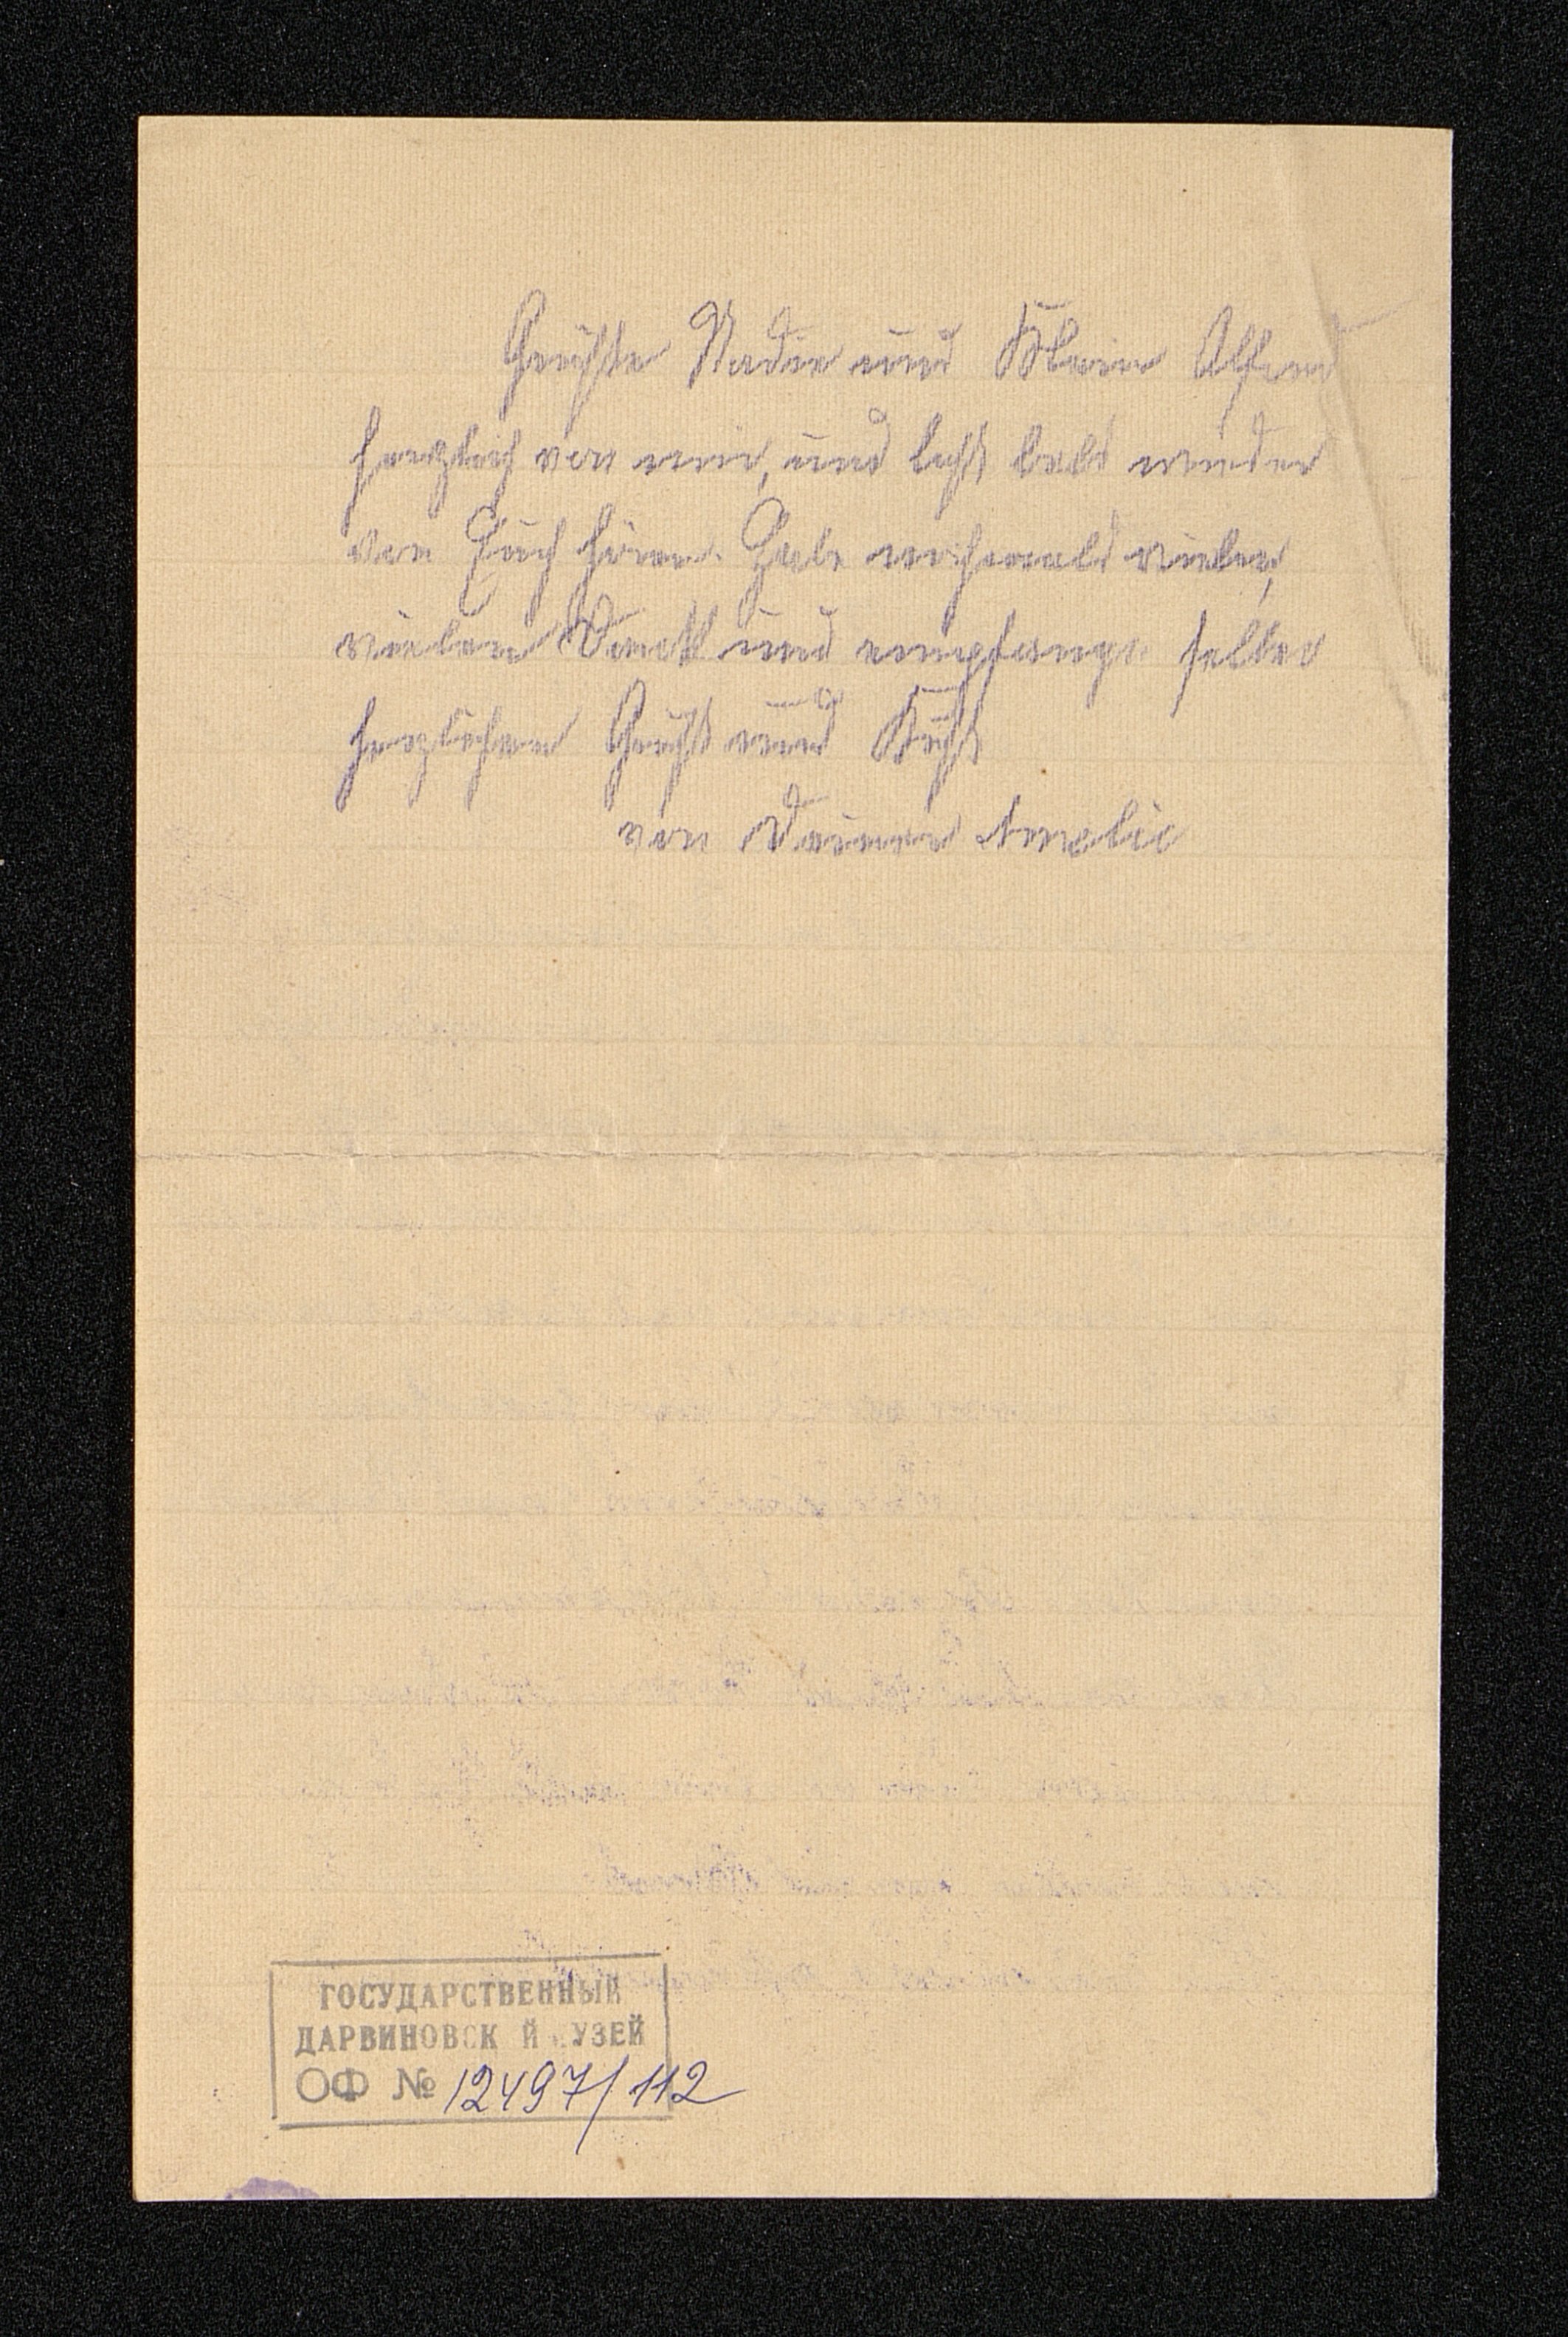 Grüsse Nadin und Klein Alfred
herzlich von mir, und lasst bald wieder
von Euch hören. Habe nochmals vielen,
vielen Dank und empfange selber
herzlichen Gruss und Kuss
von Deiner Amelie
ГОСУДАРСТВЕННЫЙ
ДАРВИНОВСК Й УЗЕЙ
ОФ № 12497/112